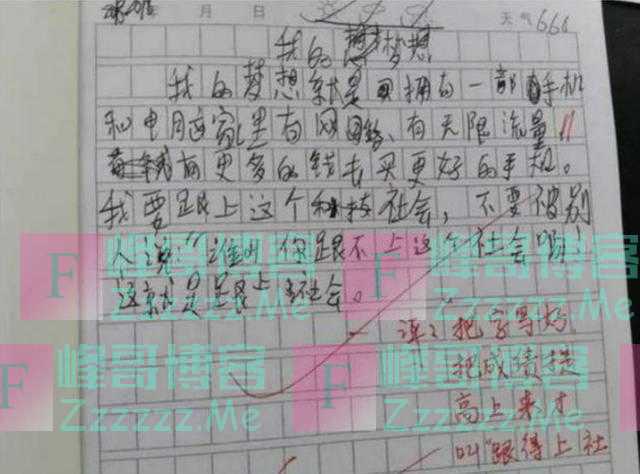 年 月 日 天气666
我的梦想
我的梦想就是拥有一部手机
和电脑这家里有网络、有无限流量!!
有更多的钱去买更好的手机。
我要跟上这个科技社会,不要被别
人说:“谁叫你跟不上这个社会啊!
这就是跟上社会。
评:把字写好,
把成绩提
高上来才
叫“跟得上社
F 峰哥博客
Zzzzzz.Me
F 峰哥博客
Zzzzzz.Me